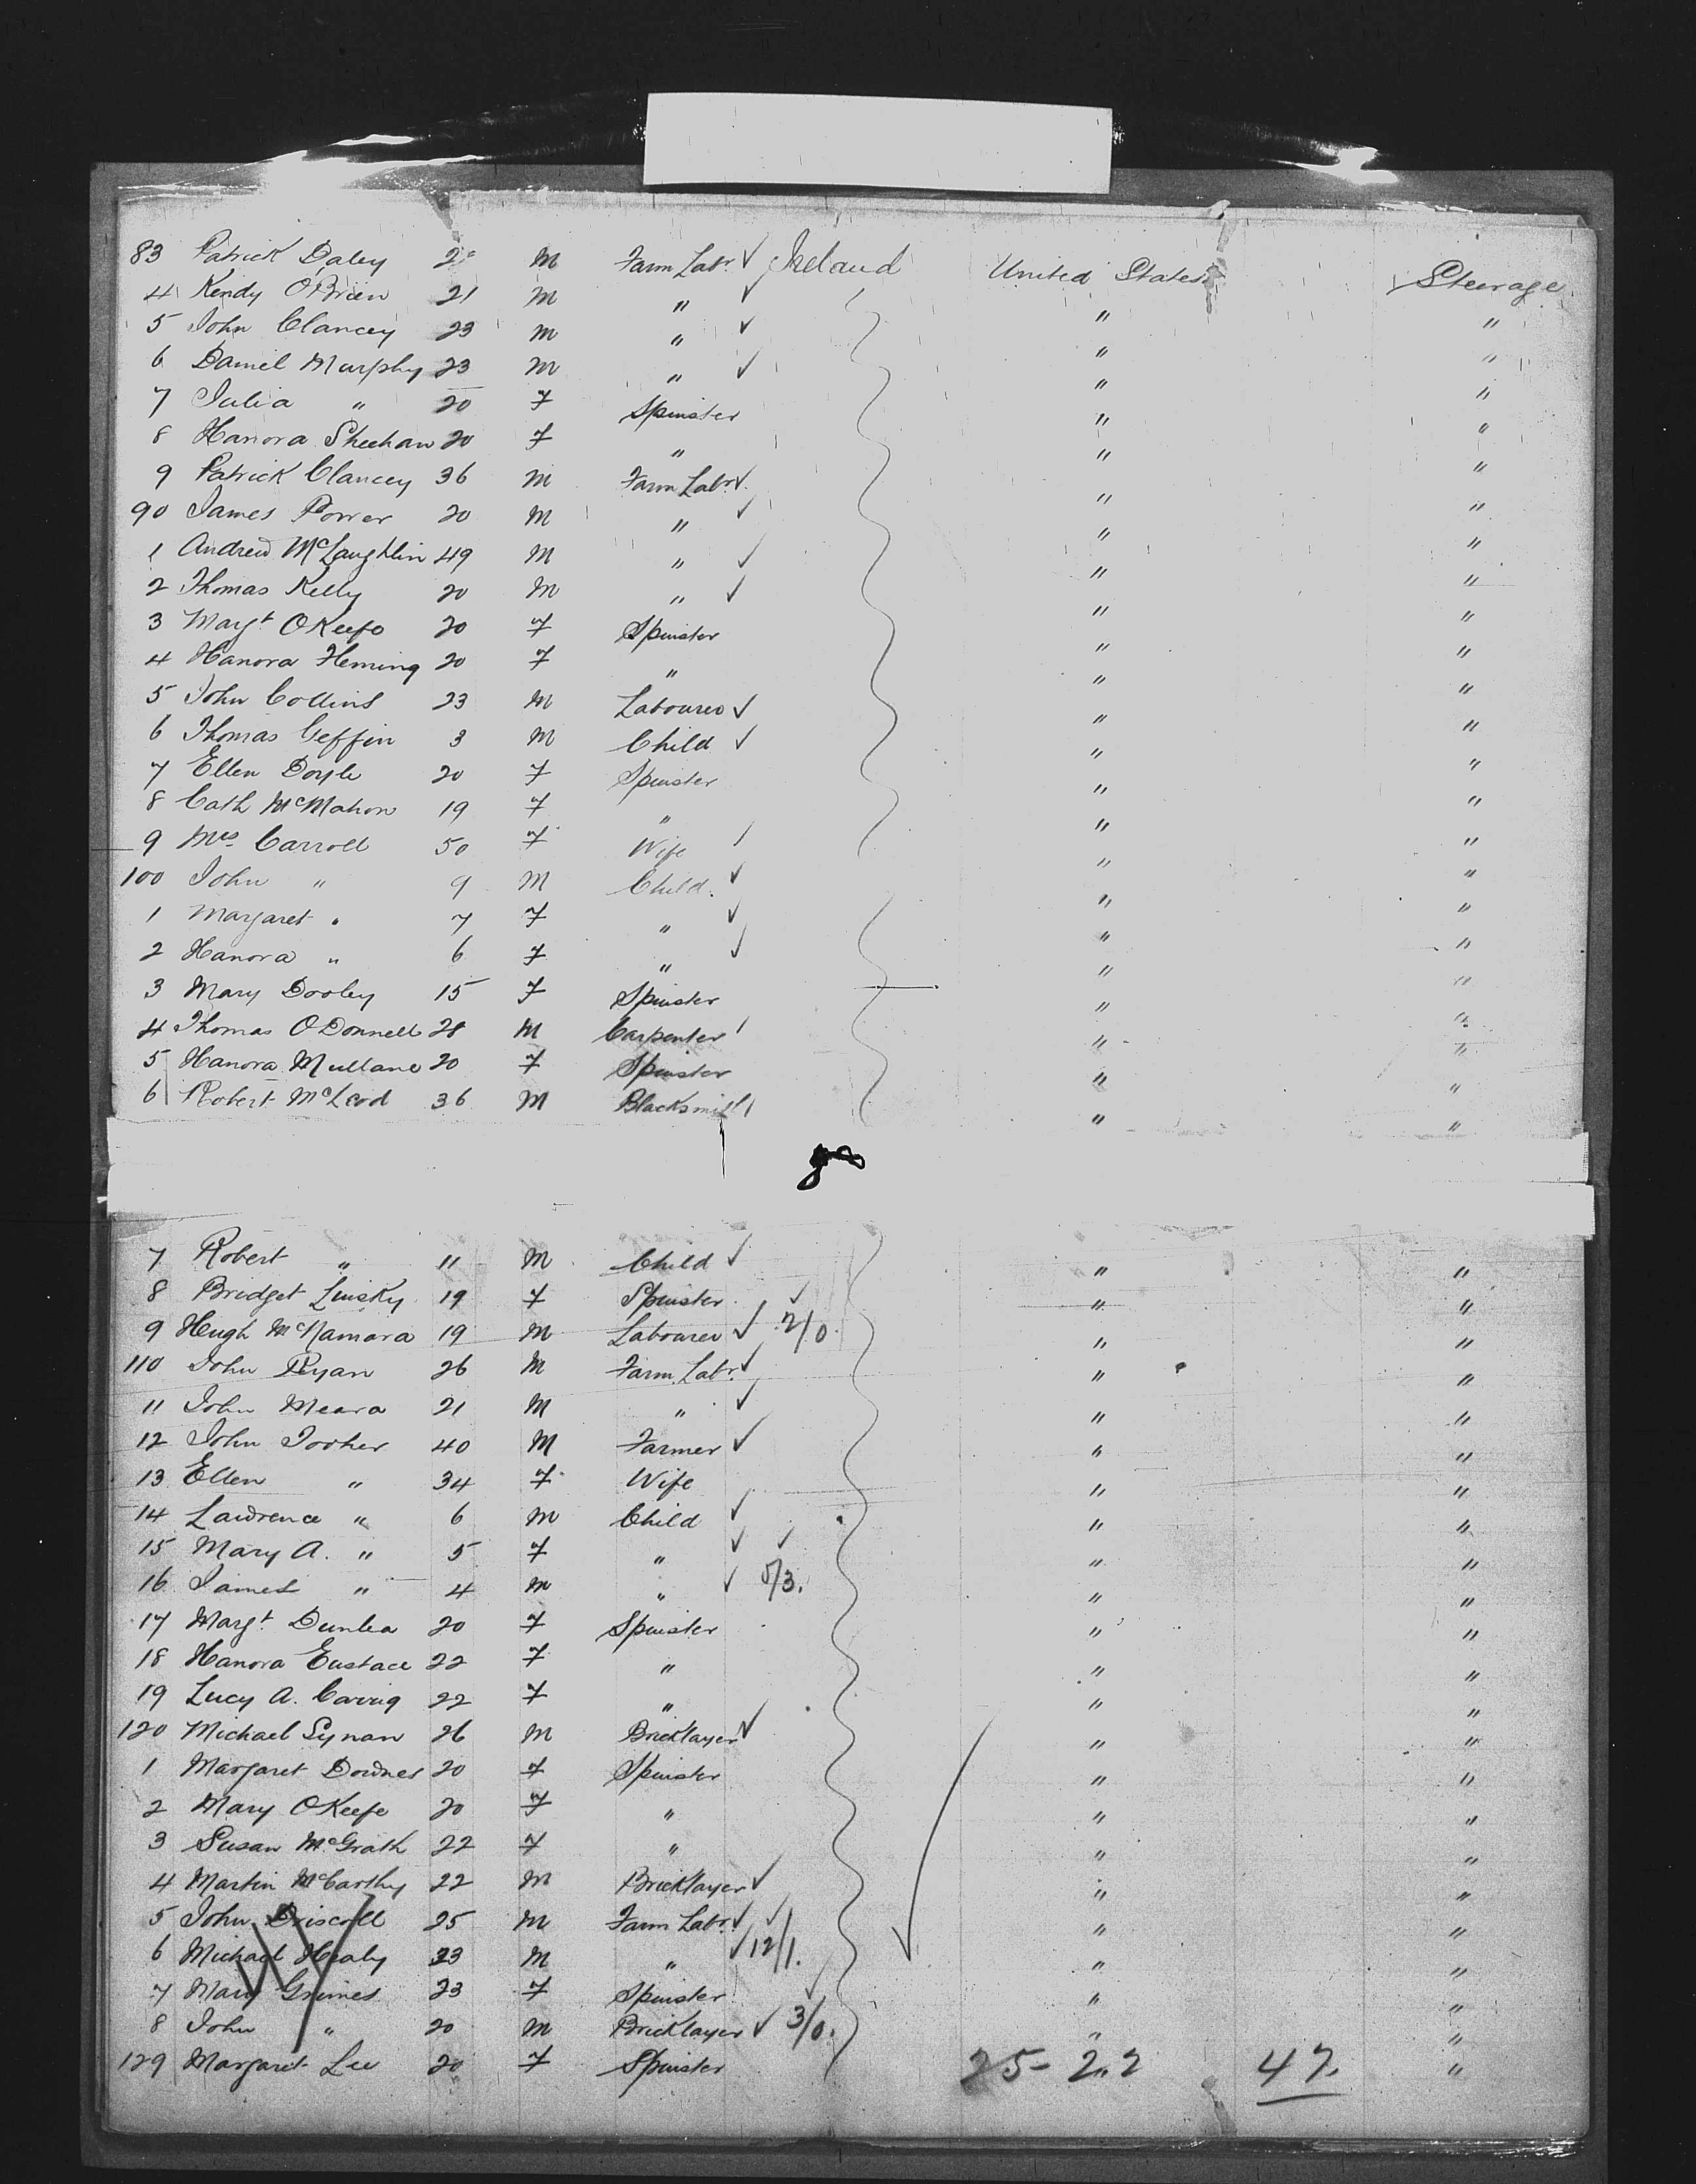 83 Patrick Daley 2 M Farm Labr ✓ Ireland United States Steerage
4 Kendy OBrien 21 M " ✓ " "
5 John Clancey 23 M " ✓ " "
6 Daniel Murphy 23 M " ✓ " "
7 Julia " 20 F Spinster " "
8 Hanora Sheehan 20 F " " "
9 Patrick Clancey 36 M Farm Labr ✓ " "
90 James Power 20 M " ✓ " "
1 Andrew McLaughlin 49 M " ✓ " "
2 Thomas Kelly 20 M " ✓ " "
3 Margt OKeefe 20 F Spinster " "
4 Hanora Fleming 20 F " " "
5 John Collins 23 M Labourer ✓ " "
6 Thomas Geffin 3 M Child ✓ " "
7 Ellen Doyle 20 F Spinster " "
8 Cath McMahon 19 F " " "
9 Mrs Carroll 50 F Wife " "
100 John " 9 M Child. ✓ " "
1 Margaret " 7 F " ✓ " "
2 Hanora " 6 F " ✓ " "
3 Mary Dooley 15 F Spinster " "
4 Thomas ODonnell 28 M Carpenter " "
5 Hanora Mullane 20 F Spinster " "
6 Robert McLeod 36 M Blacksmith " "
7 Robert " 11 M Child ✓ " "
8 Bridget Linsky 19 F Spinster ✓ " "
9 Hugh McNamara 19 M Labourer ✓ 2/0. " "
110 John Ryan 26 M Farm Labr ✓ " "
11 John Meara 21 M " ✓ " "
12 John Tooher 40 M Farmer ✓ " "
13 Ellen " 34 F Wife " "
14 Lawrence " 6 M Child ✓ " "
15 Mary A. " 5 F " ✓ ✓ " "
16 James " 4 M " ✓ 5/3. " "
17 Margt Dunlea 20 F Spinster " "
18 Hanora Eustace 22 F " " "
19 Lucy A. 22 F " " "
120 Michael Synan 26 M Bricklayer ✓ " "
1 Margaret Downes 20 F Spinster " "
2 Mary OKeefe 20 F " " "
3 Susan McGrath 22 F " " "
4 Martin McCarthy 22 M Bricklayer ✓ " "
5 John Driscoll 25 M Farm Labr ✓ ✓ " "
6 Michael Healy 23 M " ✓ 12/1. " "
7 Mary Grimes 23 F Spinster ✓ " "
8 John " 20 M Bricklayer ✓ 3/0. " "
129 Margaret Lee 20 F Spinster 25-22 47. "